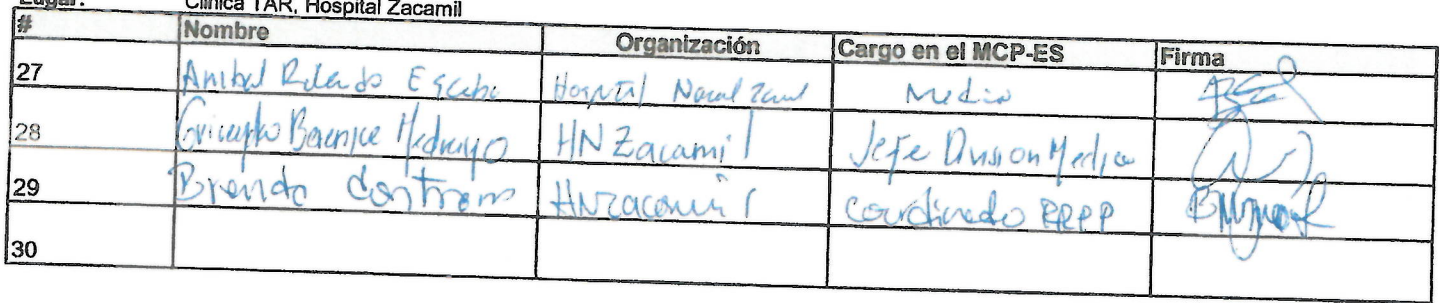 Lugar: Clínica TAR, Hospital Zacamil
# Nombre Organización Cargo en el MCP-ES Firma
27 Anibal Rolando Escobar Hospital Medico
28 Berenice HN Zacamil Jefe Division Medica
29 Brenda Contreras HNZacamil coordinado RRPP
30